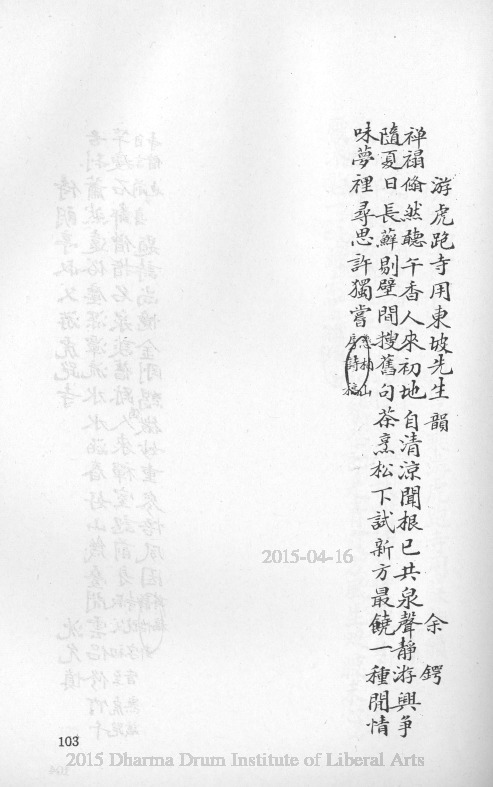 游虎跑寺用東坡先生韻 余鍔
禅榻翛然聽午香人來初地自清涼聞根已共泉聲靜游興爭
隨夏日長蘚剔壁間搜舊句茶烹松下試新方最饒一種閒情
味夢裡尋思許獨嘗
慈柏山
房詩稿
2015-04-16
103
2015 Dharma Drum Institute of Liberal Arts